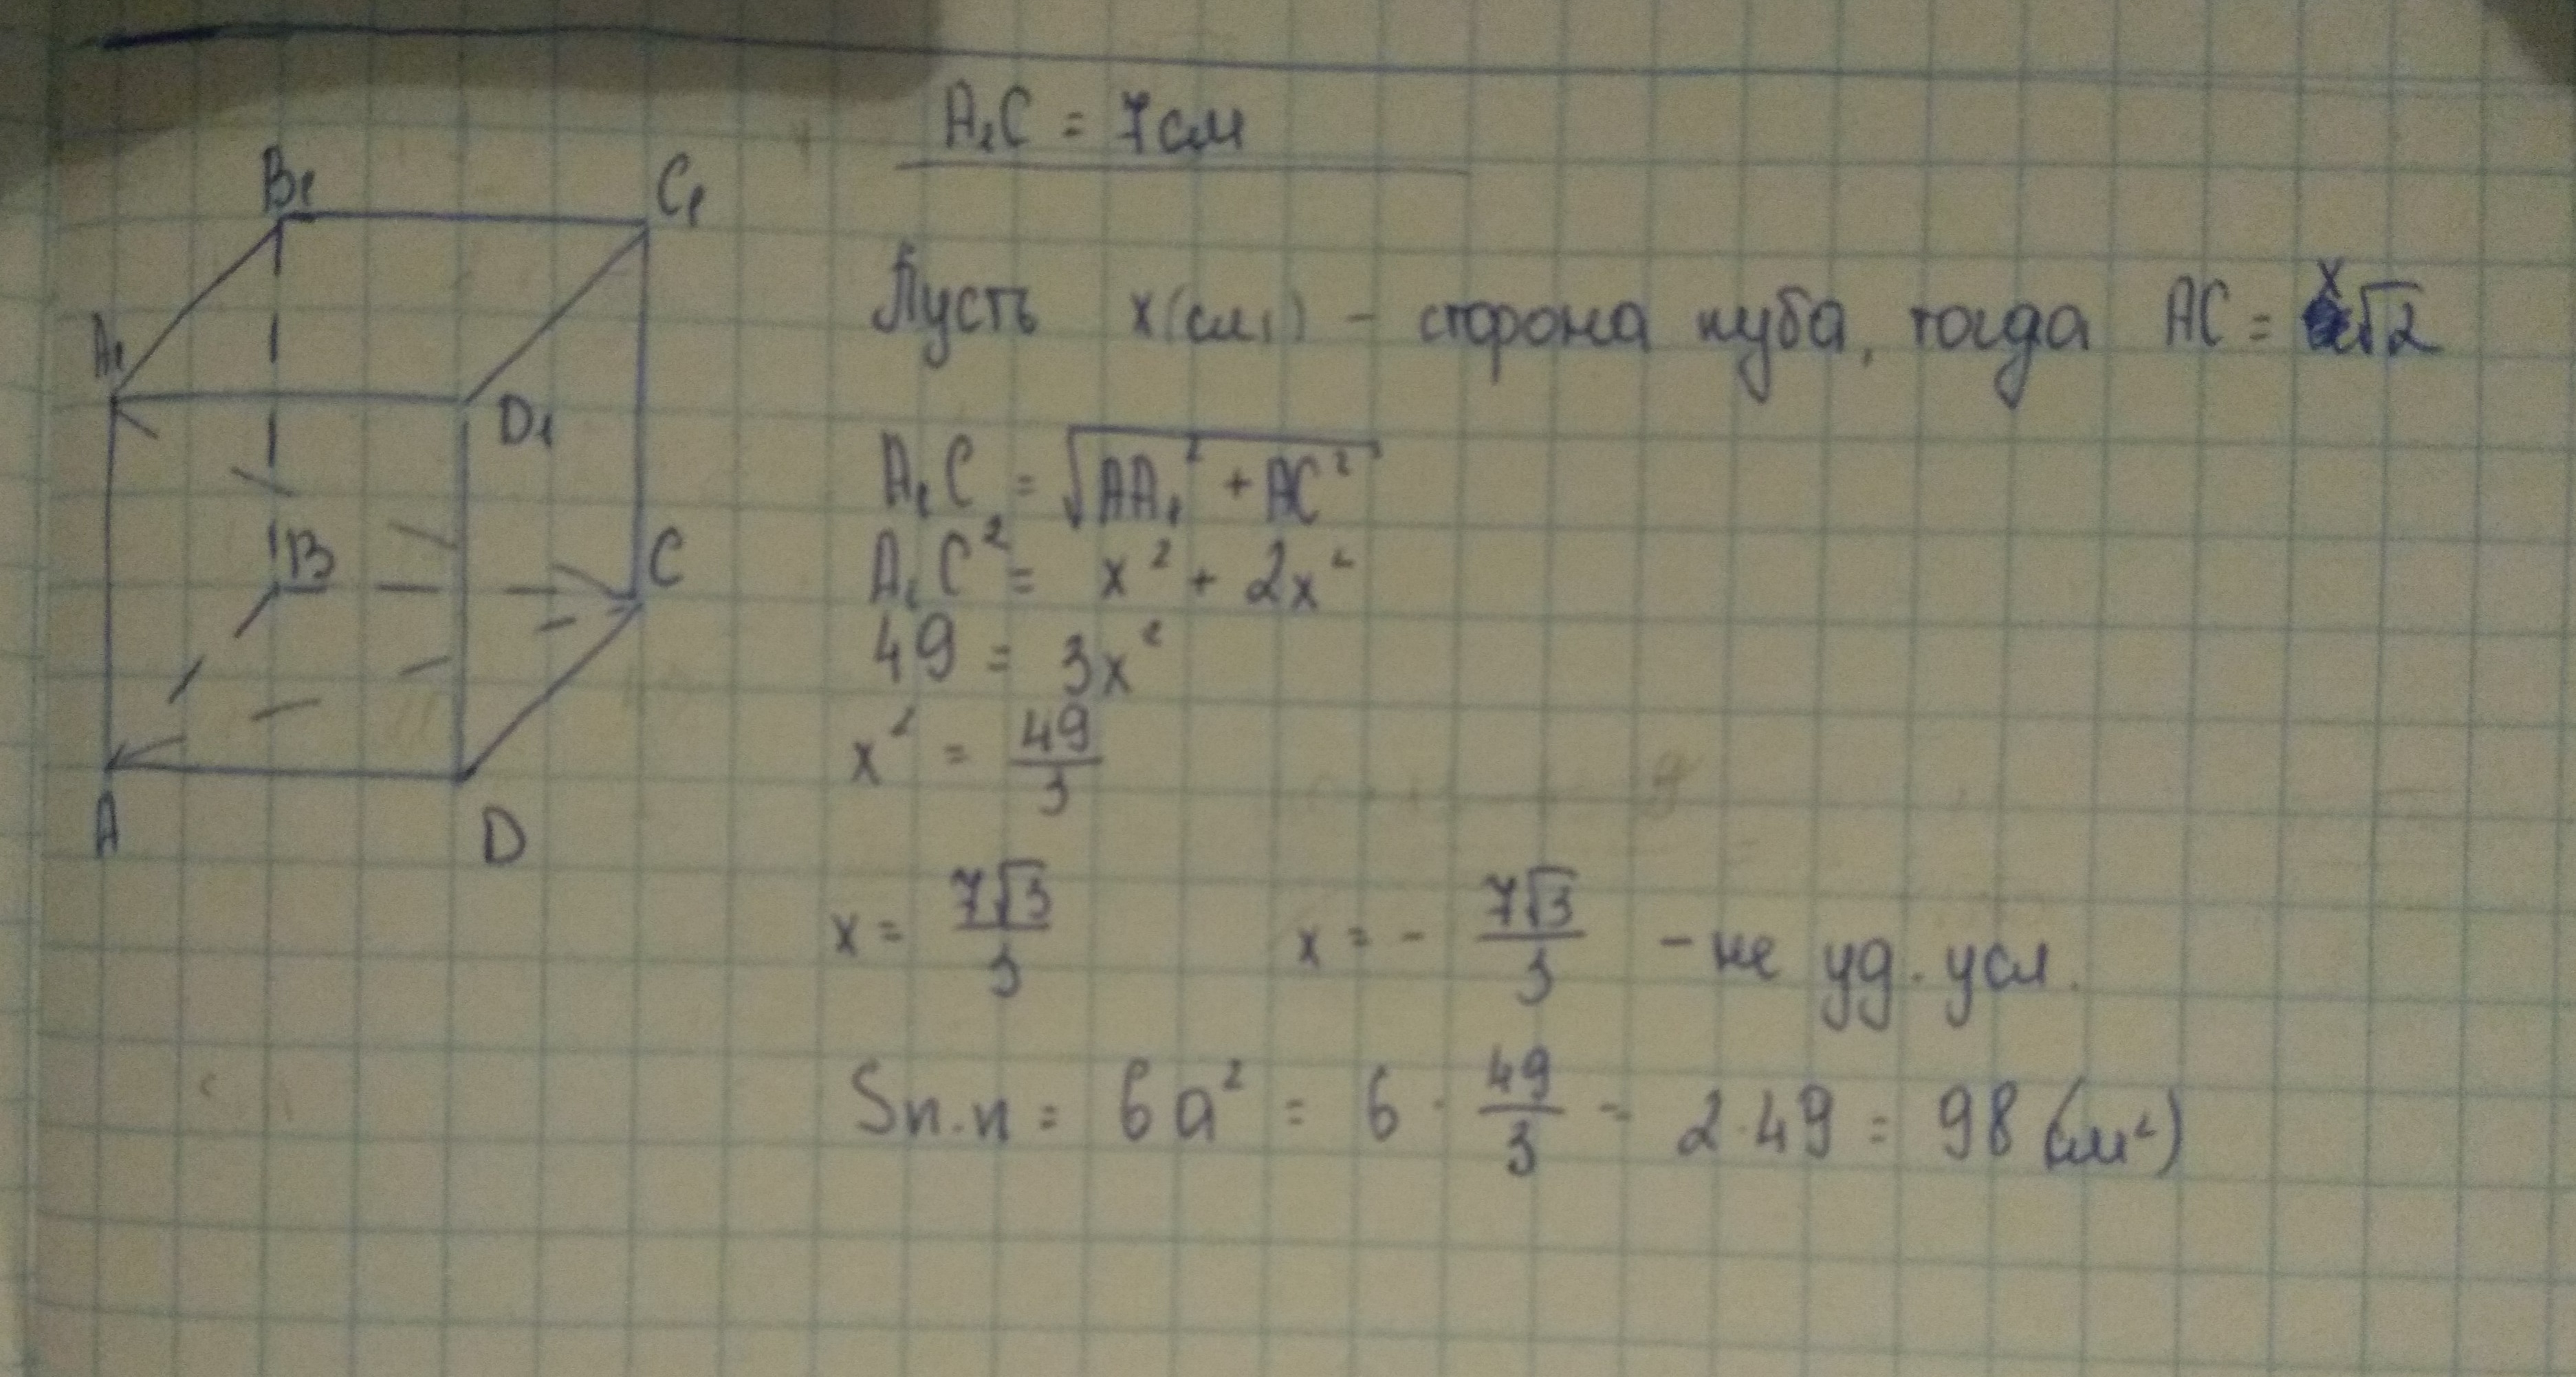 A₁C = 7см
B₁ C₁
A₁ D₁
B C
A D
Пусть x(см) - сторона куба, тогда AC = x√2
A₁C = √(AA₁² + AC²)
A₁C² = x² + 2x²
49 = 3x²
x² = 49/3
x = 7√3/3 x = - 7√3/3 - не уд. усл.
Sп.п = 6a² = 6 · 49/3 = 2·49 = 98 (см²)